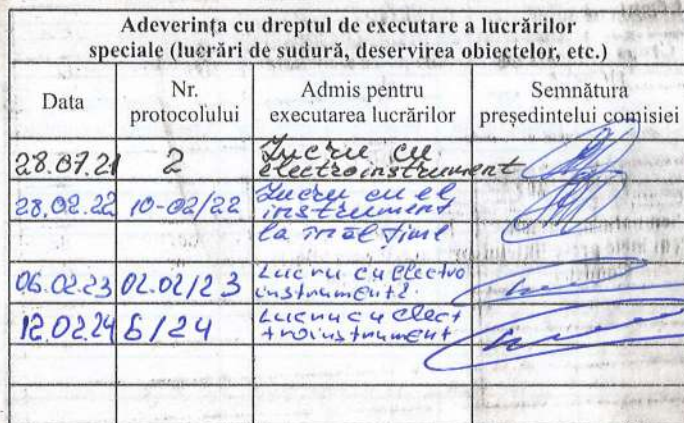 Adeverința cu dreptul de executare a lucrărilor
speciale (lucrări de sudură, deservirea obiectelor, etc.)
Data Nr. protocolului Admis pentru executarea lucrărilor Semnătura președintelui comisiei
28.07.21 2 Lucru cu
electroinstrument
28.02.22 10-02/22 Lucru cu el
instrument
la înălțime
06.02.23 02.02/23 Lucru cu electro
instrument
12.02.24 6/24 Lucru cu elect
troinstrument